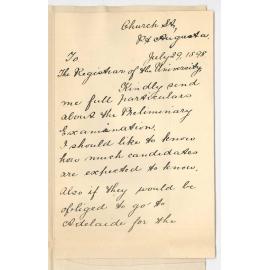 Church St,
Pt Augusta,
July 29, 1898
To
The Registrar of the University,
Kindly send
me full particulars
about the Preliminary
Examination.
I should like to know
how much candidates
are expected to know.
Also if they would be
obliged to go to
Adelaide for the